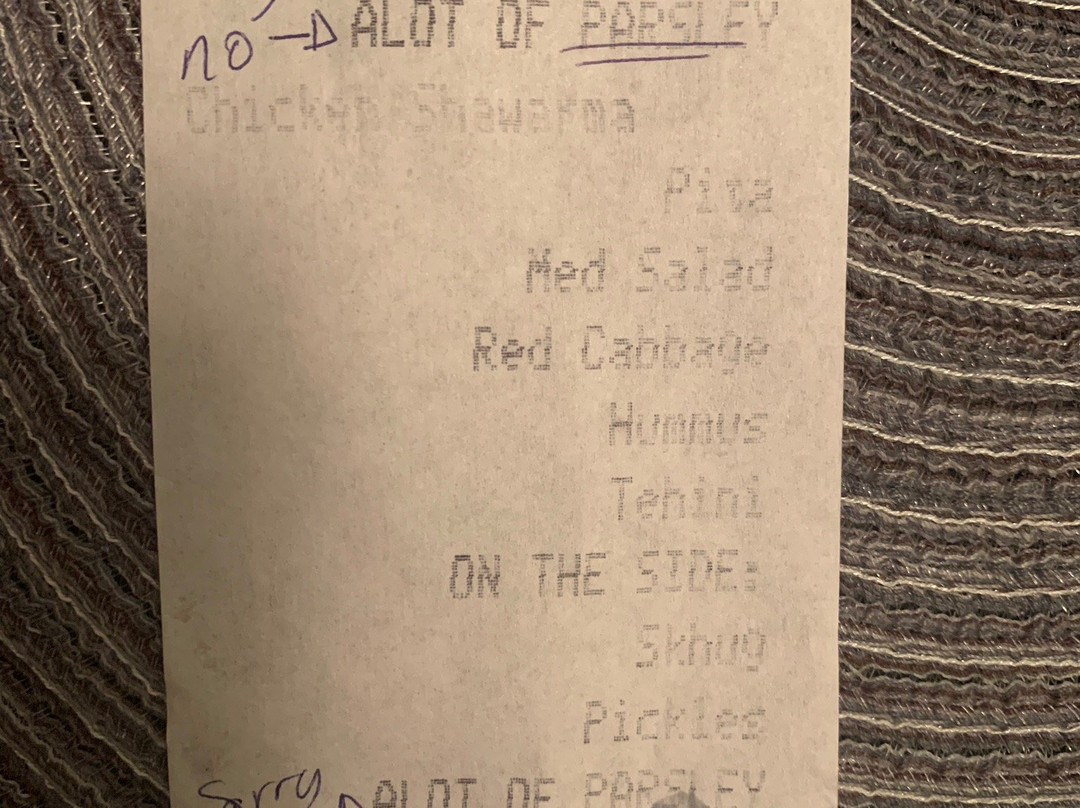 no → ALOT OF PARSLEY
Chicken Shawarma
Pita
Med Salad
Red Cabbage
Hummus
Tehini
ON THE SIDE:
Skhug
Pickles
Sorry
ALOT OF PARSLEY